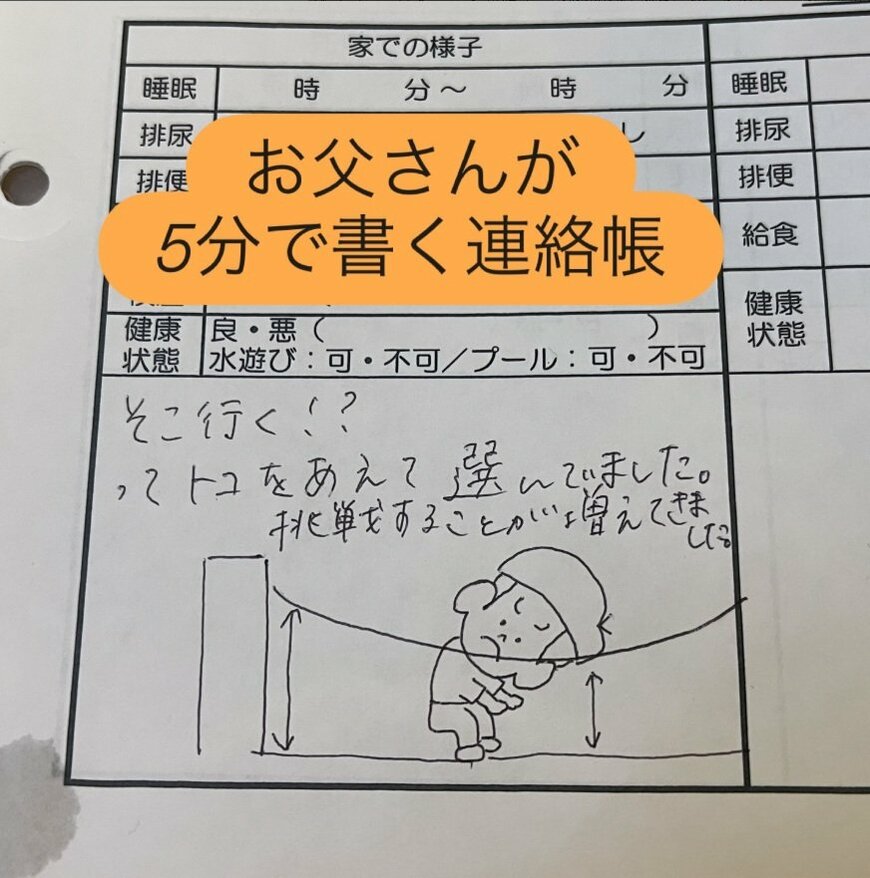 家での様子
睡眠 時 分～ 時 分 睡眠
排尿 し 排尿
お父さんが
排便 排便
5分で書く連絡帳
給食
健康状態 良・悪（ ） 健康状態
水遊び：可・不可／プール：可・不可
そこ行く！？
ってトコをあえて選んでました。
挑戦することが増えてきました。